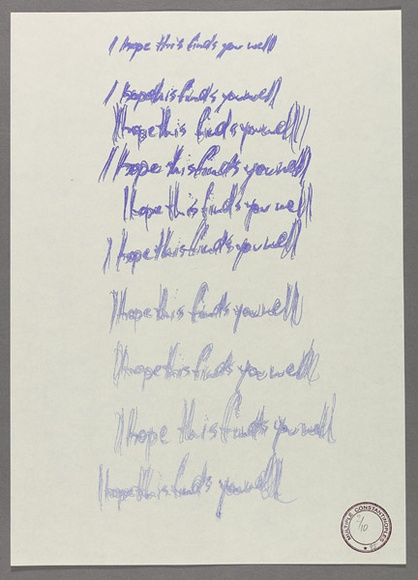 I hope this finds you well
I hope this finds you well
I hope this finds you well
I hope this finds you well
I hope this finds you well
I hope this finds you well
I hope this finds you well
I hope this finds you well
I hope this finds you well
I hope this finds you well
MULTIPLE CONSTANTINOPLES
/10